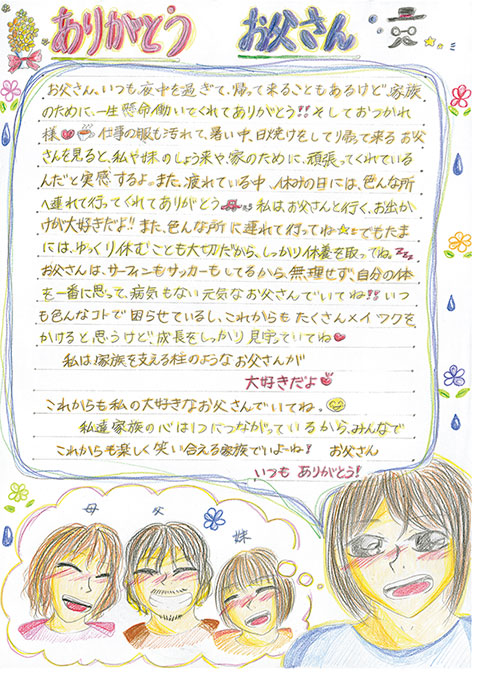 ありがとう お父さん
お父さん、いつも夜中を過ぎて、帰って来ることもあるけど家族
のために、一生懸命働いてくれてありがとう!!そしておつかれ
様 仕事の服も汚れて、暑い中、日焼けをして帰って来るお父
さんを見ると、私や妹のしょう来や、家のために、頑張ってくれている
んだと実感するよ。また、疲れている中、休みの日には、色んな所
へ連れて行ってくれてありがとう 私は、お父さんと行く、お出か
けが大好きだよ!!また、色んな所に連れて行ってね☆でもたま
には、ゆっくり休むことも大切だから、しっかり休養を取ってね。zzz
お父さんは、サーフィンもサッカーもしてるから、無理せず、自分の体
を一番に思って、病気もない元気なお父さんでいてね!!いつ
も色んなコトで困らせているし、これからもたくさんメイワクを
かけると思うけど、成長をしっかり見守っていてね
私は家族を支える柱のようなお父さんが
大好きだよ
これからも私の大好きなお父さんでいてね。
私達家族の心は1つにつながっているから、みんなで
これからも楽しく笑い合える家族でいよーね! お父さん
いつもありがとう!
母 父 妹